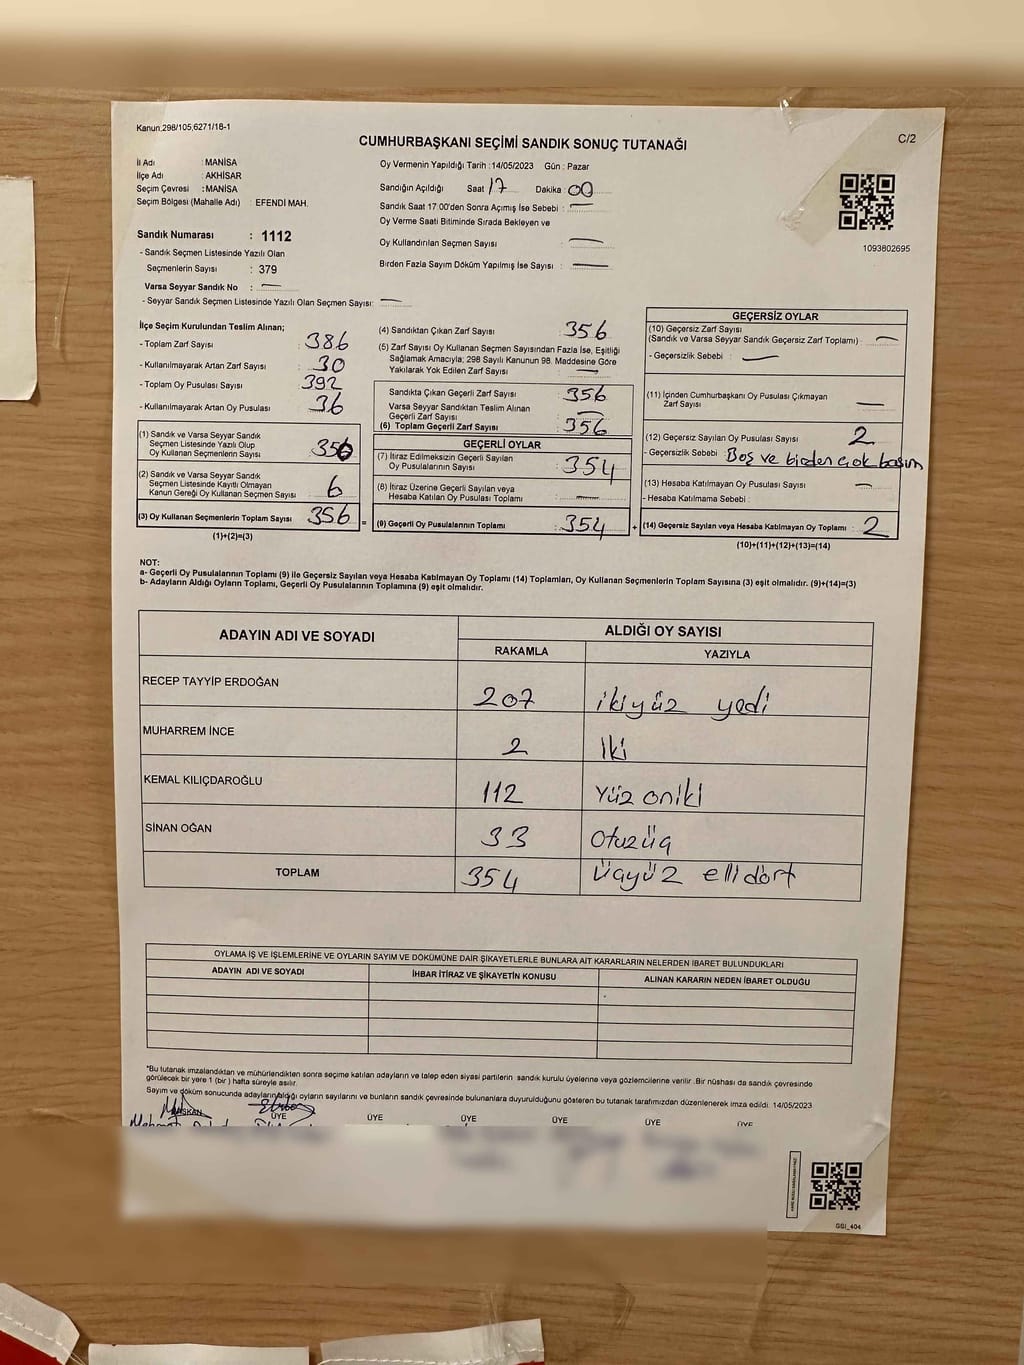 Kanun:298/105,6271/18-1
C/2
CUMHURBAŞKANI SEÇİMİ SANDIK SONUÇ TUTANAĞI
İl Adı : MANİSA
İlçe Adı : AKHİSAR
Seçim Çevresi : MANİSA
Seçim Bölgesi (Mahalle Adı) : EFENDİ MAH.
Oy Vermenin Yapıldığı Tarih : 14/05/2023 Gün : Pazar
Sandığın Açıldığı Saat 17 Dakika : 00
Sandık Saat 17:00'den Sonra Açımış İse Sebebi : —
Oy Verme Saati Bitiminde Sırada Bekleyen ve
Oy Kullandırılan Seçmen Sayısı —
Birden Fazla Sayım Döküm Yapılmış İse Sayısı : —
1093802695
Sandık Numarası : 1112
- Sandık Seçmen Listesinde Yazılı Olan
Seçmenlerin Sayısı : 379
Varsa Seyyar Sandık No : —
- Seyyar Sandık Seçmen Listesinde Yazılı Olan Seçmen Sayısı: —
İlçe Seçim Kurulundan Teslim Alınan;
- Toplam Zarf Sayısı : 386
- Kullanılmayarak Artan Zarf Sayısı : 30
- Toplam Oy Pusulası Sayısı : 392
- Kullanılmayarak Artan Oy Pusulası : 36
(1) Sandık ve Varsa Seyyar Sandık
Seçmen Listesinde Yazılı Olup
Oy Kullanan Seçmenlerin Sayısı : 350
(2) Sandık ve Varsa Seyyar Sandık
Seçmen Listesinde Kayıtlı Olmayan
Kanun Gereği Oy Kullanan Seçmen Sayısı : 6
(3) Oy Kullanan Seçmenlerin Toplam Sayısı : 356
(1)+(2)=(3)
(4) Sandıktan Çıkan Zarf Sayısı : 356
(5) Zarf Sayısı Oy Kullanan Seçmen Sayısından Fazla İse, Eşitliği
Sağlamak Amacıyla; 298 Sayılı Kanunun 98. Maddesine Göre
Yakılarak Yok Edilen Zarf Sayısı : —
Sandıkta Çıkan Geçerli Zarf Sayısı : 356
Varsa Seyyar Sandıktan Teslim Alınan
Geçerli Zarf Sayısı : —
(6) Toplam Geçerli Zarf Sayısı : 356
GEÇERLİ OYLAR
(7) İtiraz Edilmeksizin Geçerli Sayılan
Oy Pusulalarının Sayısı : 354
(8) İtiraz Üzerine Geçerli Sayılan veya
Hesaba Katılan Oy Pusulası Toplamı : —
(9) Geçerli Oy Pusulalarının Toplamı : 354
GEÇERSİZ OYLAR
(10) Geçersiz Zarf Sayısı
(Sandık ve Varsa Seyyar Sandık Geçersiz Zarf Toplamı) : —
- Geçersizlik Sebebi : —
(11) İçinden Cumhurbaşkanı Oy Pusulası Çıkmayan
Zarf Sayısı : —
(12) Geçersiz Sayılan Oy Pusulası Sayısı : 2
- Geçersizlik Sebebi : Boş ve birden çok basım
(13) Hesaba Katılmayan Oy Pusulası Sayısı : —
- Hesaba Katılmama Sebebi :
(14) Geçersiz Sayılan veya Hesaba Katılmayan Oy Toplamı : 2
(10)+(11)+(12)+(13)=(14)
NOT:
a- Geçerli Oy Pusulalarının Toplamı (9) ile Geçersiz Sayılan veya Hesaba Katılmayan Oy Toplamı (14) Toplamları, Oy Kullanan Seçmenlerin Toplam Sayısına (3) eşit olmalıdır. (9)+(14)=(3)
b- Adayların Aldığı Oyların Toplamı, Geçerli Oy Pusulalarının Toplamına (9) eşit olmalıdır.
ADAYIN ADI VE SOYADI ALDIĞI OY SAYISI
RAKAMLA YAZIYLA
RECEP TAYYİP ERDOĞAN 207 ikiyüz yedi
MUHARREM İNCE 2 İki
KEMAL KILIÇDAROĞLU 112 Yüz oniki
SİNAN OĞAN 33 Otuzüç
TOPLAM 354 Üçyüz ellidört
OYLAMA İŞ VE İŞLEMLERİNE VE OYLARIN SAYIM VE DÖKÜMÜNE DAİR ŞİKAYETLERLE BUNLARA AİT KARARLARIN NELERDEN İBARET BULUNDUKLARI
ADAYIN ADI VE SOYADI İHBAR İTİRAZ VE ŞİKAYETİN KONUSU ALINAN KARARIN NEDEN İBARET OLDUĞU
*Bu tutanak imzalandıktan ve mühürlendikten sonra seçime katılan adayların ve talep eden siyasi partilerin sandık kurulu üyelerine veya gözlemcilerine verilir .Bir nüshası da sandık çevresinde
görülecek bir yere 1 (bir ) hafta süreyle asılır.
Sayım ve döküm sonucunda adayların aldığı oyların sayılarını ve bunların sandık çevresinde bulunanlara duyurulduğunu gösteren bu tutanak tarafımızdan düzenlenerek imza edildi. 14/05/2023
BAŞKAN ÜYE ÜYE ÜYE ÜYE ÜYE ÜYE
GGI_404